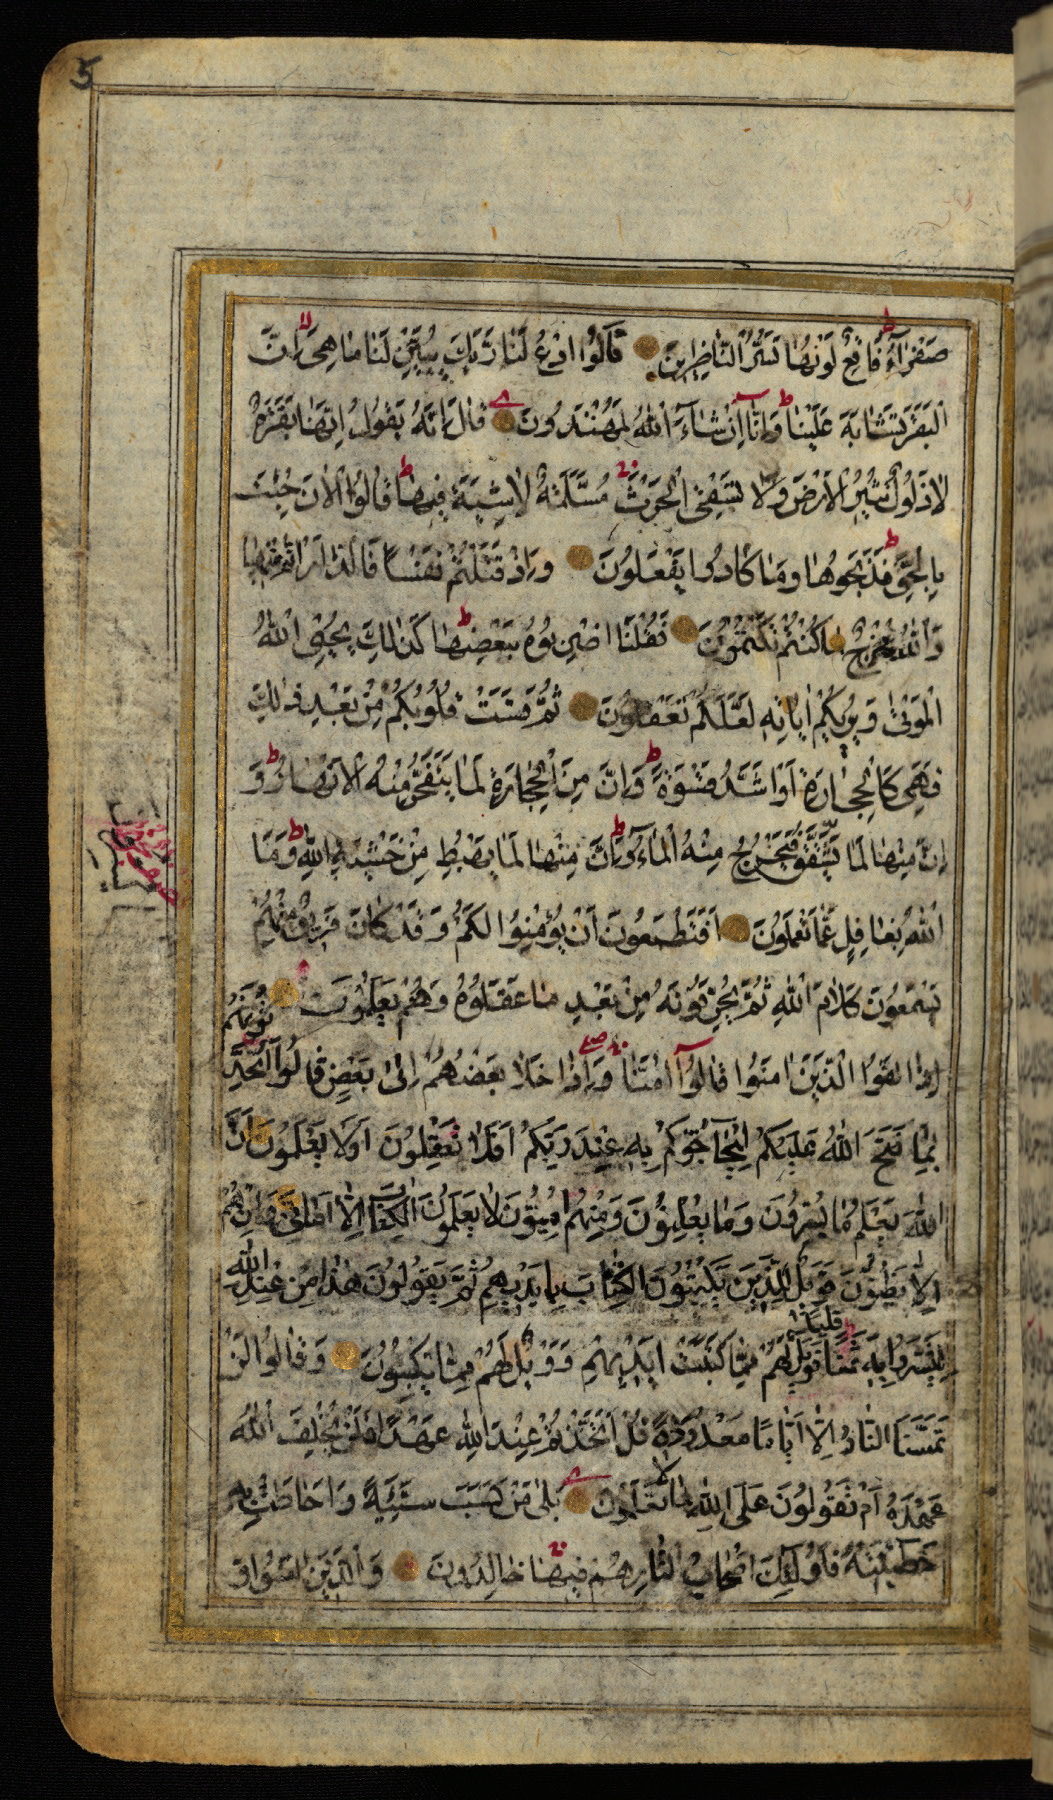 5
صَفْرَآءُ فَاقِعٌ لَوْنُهَا تَسُرُّ النَّاظِرِينَ قَالُوا ادْعُ لَنَا رَبَّكَ يُبَيِّنْ لَنَا مَا هِيَ اِنَّ
الْبَقَرَ تَشَابَهَ عَلَيْنَا وَاِنَّآ اِنْ شَآءَ اللّٰهُ لَمُهْتَدُونَ قَالَ اِنَّهُ يَقُولُ اِنَّهَا بَقَرَةٌ
لَا ذَلُولٌ تُثِيرُ الْاَرْضَ وَلَا تَسْقِي الْحَرْثَ مُسَلَّمَةٌ لَا شِيَةَ فِيهَا قَالُوا الْاٰنَ جِئْتَ
بِالْحَقِّ فَذَبَحُوهَا وَمَا كَادُوا يَفْعَلُونَ وَاِذْ قَتَلْتُمْ نَفْسًا فَادّٰرَاْتُمْ فِيهَا
وَاللّٰهُ مُخْرِجٌ مَا كُنْتُمْ تَكْتُمُونَ فَقُلْنَا اضْرِبُوهُ بِبَعْضِهَا كَذٰلِكَ يُحْيِي اللّٰهُ
الْمَوْتٰى وَيُرِيكُمْ اٰيَاتِهِ لَعَلَّكُمْ تَعْقِلُونَ ثُمَّ قَسَتْ قُلُوبُكُمْ مِنْ بَعْدِ ذٰلِكَ
فَهِيَ كَالْحِجَارَةِ اَوْ اَشَدُّ قَسْوَةً وَاِنَّ مِنَ الْحِجَارَةِ لَمَا يَتَفَجَّرُ مِنْهُ الْاَنْهَارُ وَ
اِنَّ مِنْهَا لَمَا يَشَّقَّقُ فَيَخْرُجُ مِنْهُ الْمَآءُ وَاِنَّ مِنْهَا لَمَا يَهْبِطُ مِنْ خَشْيَةِ اللّٰهِ وَمَا
اللّٰهُ بِغَافِلٍ عَمَّا تَعْمَلُونَ اَفَتَطْمَعُونَ اَنْ يُؤْمِنُوا لَكُمْ وَقَدْ كَانَ فَرِيقٌ مِنْهُمْ
يَسْمَعُونَ كَلَامَ اللّٰهِ ثُمَّ يُحَرِّفُونَهُ مِنْ بَعْدِ مَا عَقَلُوهُ وَهُمْ يَعْلَمُونَ
وَاِذَا لَقُوا الَّذِينَ اٰمَنُوا قَالُوآ اٰمَنَّا وَاِذَا خَلَا بَعْضُهُمْ اِلٰى بَعْضٍ قَالُوآ اَتُحَدِّثُونَهُمْ
بِمَا فَتَحَ اللّٰهُ عَلَيْكُمْ لِيُحَآجُّوكُمْ بِهِ عِنْدَ رَبِّكُمْ اَفَلَا تَعْقِلُونَ اَوَلَا يَعْلَمُونَ اَنَّ
اللّٰهَ يَعْلَمُ مَا يُسِرُّونَ وَمَا يُعْلِنُونَ وَمِنْهُمْ اُمِّيُّونَ لَا يَعْلَمُونَ الْكِتَابَ اِلَّا اَمَانِيَّ وَاِنْ هُمْ
اِلَّا يَظُنُّونَ فَوَيْلٌ لِلَّذِينَ يَكْتُبُونَ الْكِتَابَ بِاَيْدِيهِمْ ثُمَّ يَقُولُونَ هٰذَا مِنْ عِنْدِ اللّٰهِ
لِيَشْتَرُوا بِهِ ثَمَنًا قَلِيلًا فَوَيْلٌ لَهُمْ مِمَّا كَتَبَتْ اَيْدِيهِمْ وَوَيْلٌ لَهُمْ مِمَّا يَكْسِبُونَ وَقَالُوا لَنْ
تَمَسَّنَا النَّارُ اِلَّا اَيَّامًا مَعْدُودَةً قُلْ اَتَّخَذْتُمْ عِنْدَ اللّٰهِ عَهْدًا فَلَنْ يُخْلِفَ اللّٰهُ
عَهْدَهُ اَمْ تَقُولُونَ عَلَى اللّٰهِ مَا لَا تَعْلَمُونَ بَلٰى مَنْ كَسَبَ سَيِّئَةً وَاَحَاطَتْ بِهِ
خَطِيئَتُهُ فَاُولٰئِكَ اَصْحَابُ النَّارِ هُمْ فِيهَا خَالِدُونَ وَالَّذِينَ اٰمَنُوا وَ